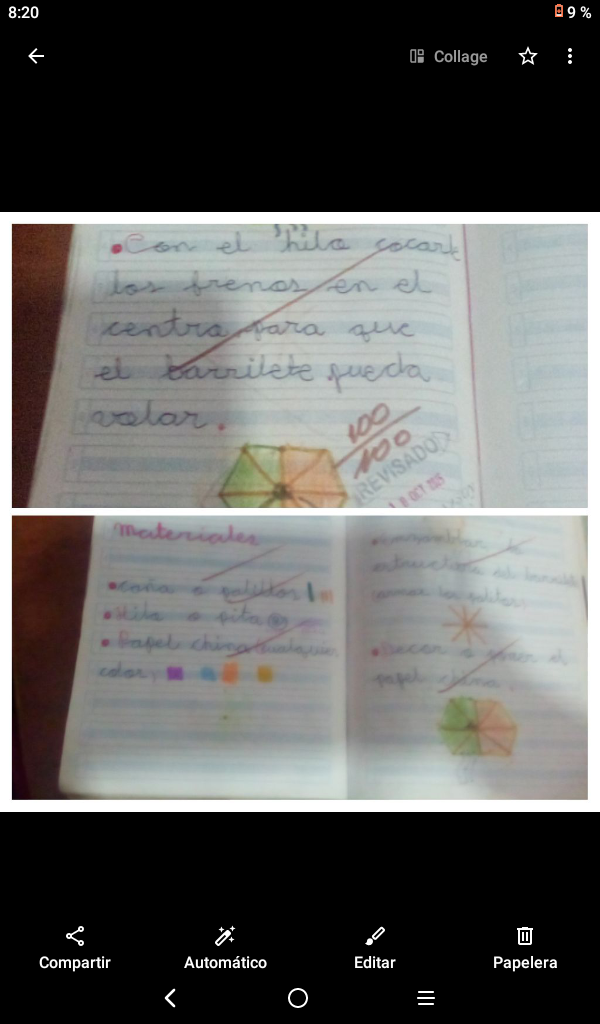 8:20
9 %
Collage
•Con el hilo cocart
los frenos en el
centro para que
el barrilete pueda
volar.
100
100
REVISADO
OCT 2025
materiales
•caña o palillos
•Hilo o pita
•Papel china cualquier
color:
•ensamblar la
estructura del barrilete
•Decor o poner el
papel china.
Compartir
Automático
Editar
Papelera